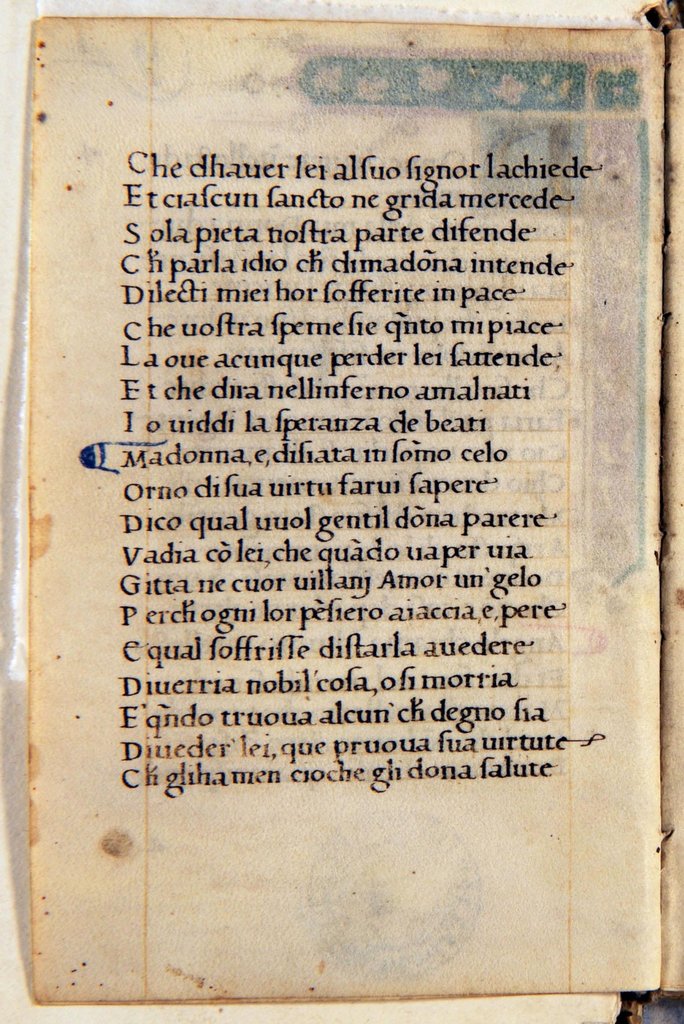 Che dhauer lei alſuo ſignor lachiede
Et ciaſcun ſancto ne grida mercede
Sola pieta noſtra parte difende
Ch̄ parla idio ch̄ dimadōna intende
Dilecti miei hor ſofferite in pace
Che uoſtra ſpeme ſie qn̄to mi piace
La oue acunque perder lei ſattende
Et che dira nellinferno amalnati
Io uiddi la ſperanza de beati
Madonna, e, diſiata in ſōmo celo
Orno di ſua uirtu farui ſapere
Dico qual uuol gentil dōna parere
Vadia cō lei, che quādo ua per uia
Gitta ne cuor uillanj Amor un' gelo
Perch̄ ogni lor pēſiero aiaccia, e, pere
E qual ſoffriſſe diſtarla auedere
Diuerria nobil' coſa, o ſi morria
E' qn̄do truoua alcun' ch̄ degno ſia
Diueder' lei, que pruoua ſua uirtute
Ch̄ gliha men cioche gli dona ſalute